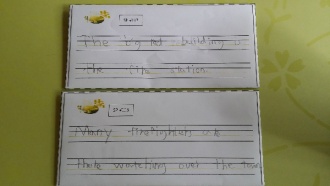 The big red building is
the fire station.
Many firefighters are
there watching over the town